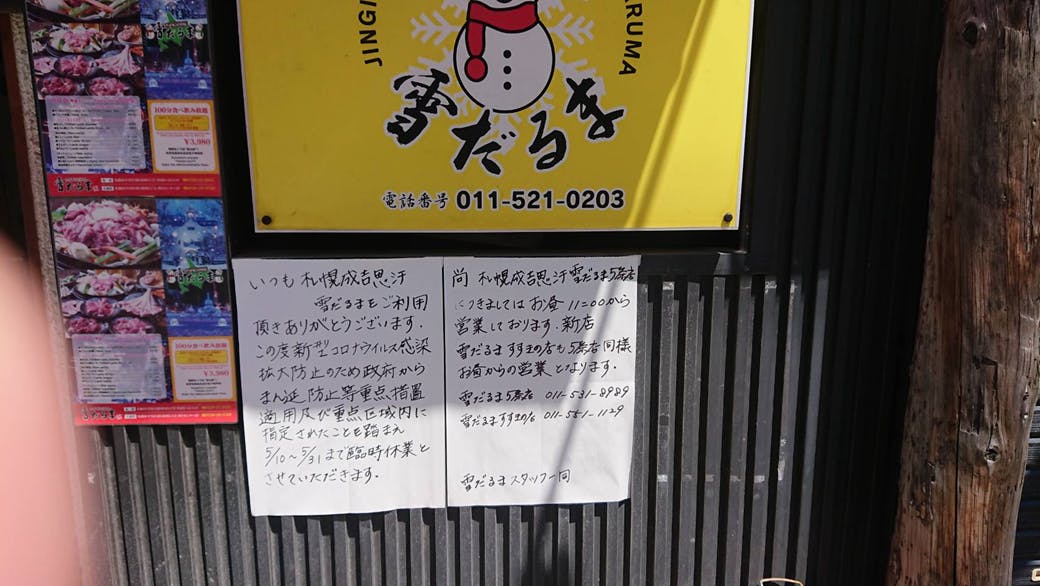 JINGI
ARUMA
雪だるま
電話番号 011-521-0203
いつも札幌成吉思汗
雪だるまをご利用
頂きありがとうございます.
この度新型コロナウイルス感染
拡大防止のため政府から
まん延防止等重点措置
適用及び重点区域内に
指定されたことを踏まえ
5/10～5/31まで臨時休業と
させていただきます.
尚 札幌成吉思汗雪だるま5条店
につきましてはお昼11:00から
営業しております.新店
雪だるますすきの店も5条店同様
お昼からの営業となります.
雪だるま5条店 011-531-8989
雪だるますすきの店 011-551-1129
雪だるまスタッフ一同
雪だるま
100分食べ飲み放題
¥3,980
雪だるま
100分食べ飲み放題
¥3,980
雪だるま